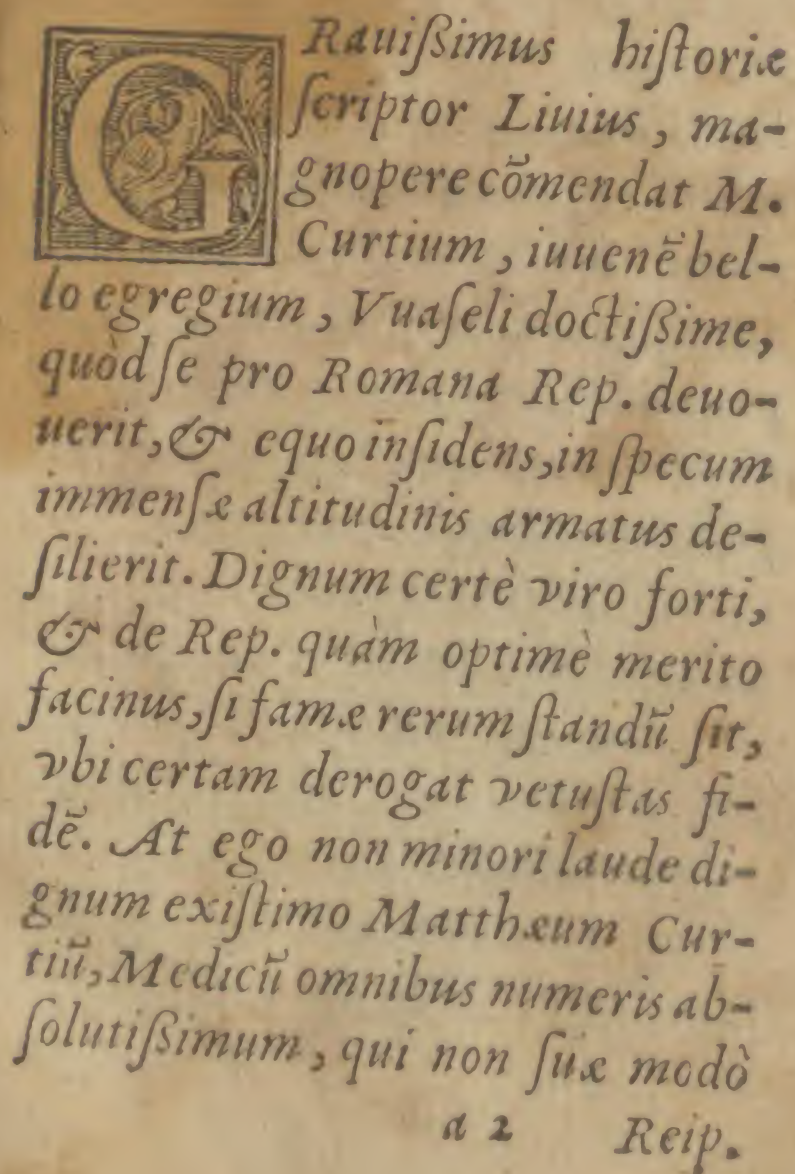 GRauißimus hiſtoriæ
ſcriptor Liuius, ma-
gnopere cõmendat M.
Curtium, iuuenẽ bel-
lo egregium, Vuaſeli doctißime,
quòd ſe pro Romana Rep. deuo-
uerit, & equo inſidens, in ſpecum
immenſæ altitudinis armatus de-
ſilierit. Dignum certè viro forti,
& de Rep. quàm optimè merito
facinus, ſi famæ rerum ſtandũ ſit,
vbi certam derogat vetuſtas fi-
dẽ. At ego non minori laude di-
gnum exiſtimo Matthæum Cur-
tiũ, Medicũ omnibus numeris ab-
ſolutißimum, qui non ſuæ modò
a 2 Reip.